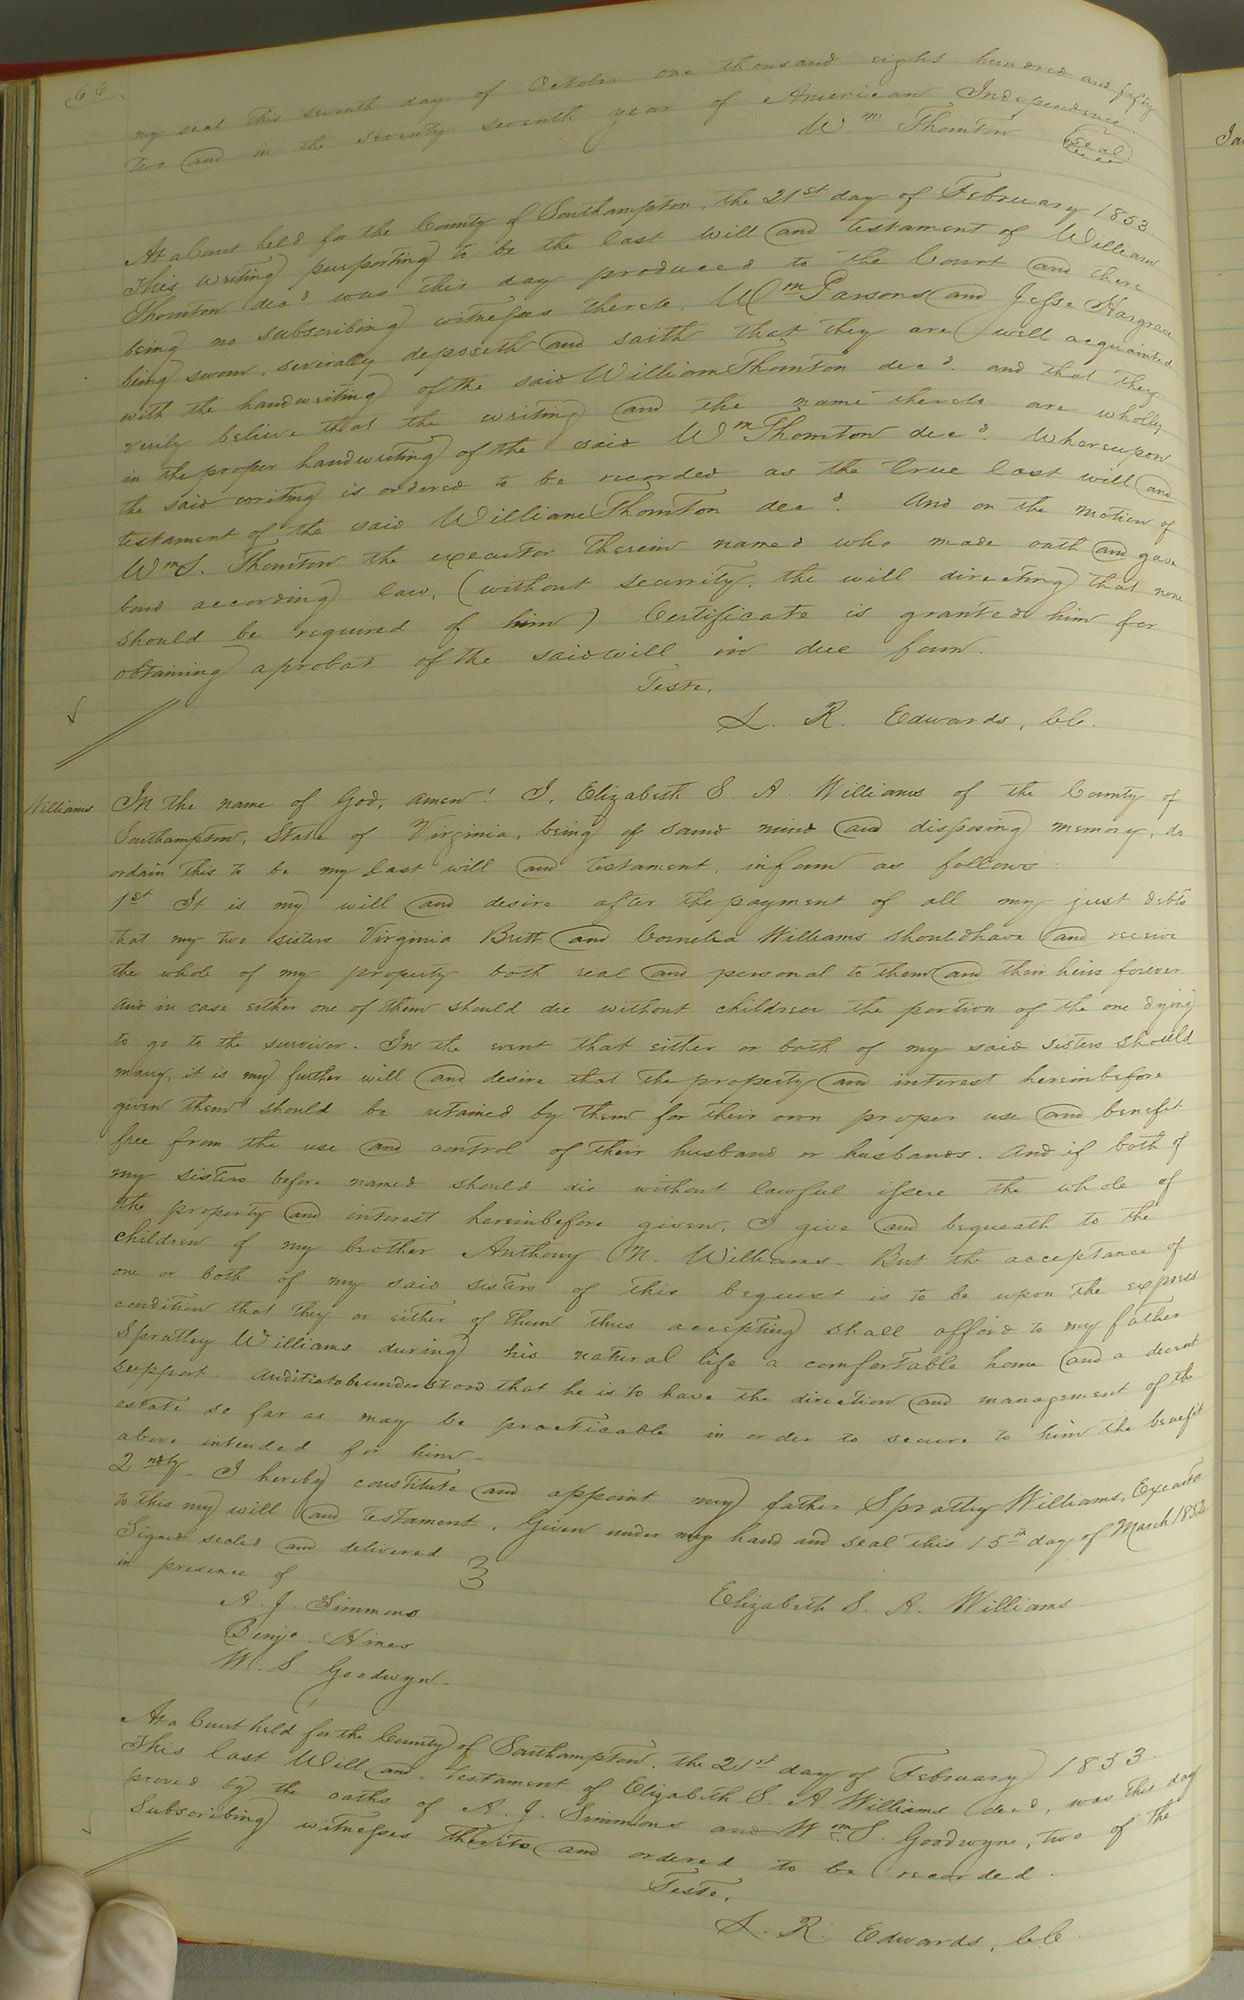 66
my seal this seventh day of October one thousand eight hundred and fifty
two and in the seventy seventh year of American Independence.
Wm Thornton (seal)
At a Court held for the County of Southampton, the 21st day of February 1853
This writing purporting to be the last will and testament of William
Thornton decd was this day produced to the Court and there
being no subscribing witnesses thereto. Wm Parsons and Jesse Hargrave
being sworn, severally deposeth and saith that they are well acquainted
with the handwriting of the said William Thornton decd. and that they
verily believe that the writing and the name thereto are wholly
in the proper handwriting of the said Wm Thornton decd. Whereupon
the said writing is ordered to be recorded as the true last will and
testament of the said William Thornton decd. And on the motion of
Wm S. Thornton the executor therein named who made oath and gave
bond according law, (without security, the will directing that none
should be required of him) Certificate is granted him for
obtaining a probat of the said will in due form.
Teste,
L. R. Edwards, C.C.
Williams
In the name of God, amen! I, Elizabeth S. A. Williams of the County of
Southampton, State of Virginia, being of sound mind and disposing memory, do
ordain this to be my last will and testament, in form as follows:
1st It is my will and desire after the payment of all my just debts
that my two sisters Virginia Britt and Cornelia Williams should have and receive
the whole of my property both real and personal to them and their heirs forever
and in case either one of them should die without children the portion of the one dying
to go to the survivor. In the event that either or both of my said sisters should
marry, it is my further will and desire that the property and interest hereinbefore
given them should be retained by them for their own proper use and benefit
free from the use and control of their husband or husbands. And if both of
my sisters before named should die without lawful issue the whole of
the property and interest hereinbefore given, I give and bequeath to the
children of my brother Anthony M. Williams. But the acceptance of
one or both of my said sisters of this bequest is to be upon the express
condition that they or either of them thus accepting shall afford to my father
Spratley Williams during his natural life a comfortable home and a decent
support. And it is to be understood that he is to have the direction and management of the
estate so far as may be practicable in order to secure to him the benefit
above intended for him.
2ndly. I hereby constitute and appoint my father Spratley Williams, Executor
to this my will and testament. Given under my hand and seal this 15th day of March 1852.
Signed sealed and delivered
in presence of
Elizabeth S. A. Williams
A. J. Simmons
Benja. Hines
W. S. Goodwyn
At a Court held for the County of Southampton, the 21st day of February 1853.
This last Will and testament of Elizabeth S. A. Williams decd, was this day
proved by the oaths of A. J. Simmons and Wm S. Goodwyn, two of the
Subscribing witnesses thereto and ordered to be recorded.
Teste,
L. R. Edwards, C.C.